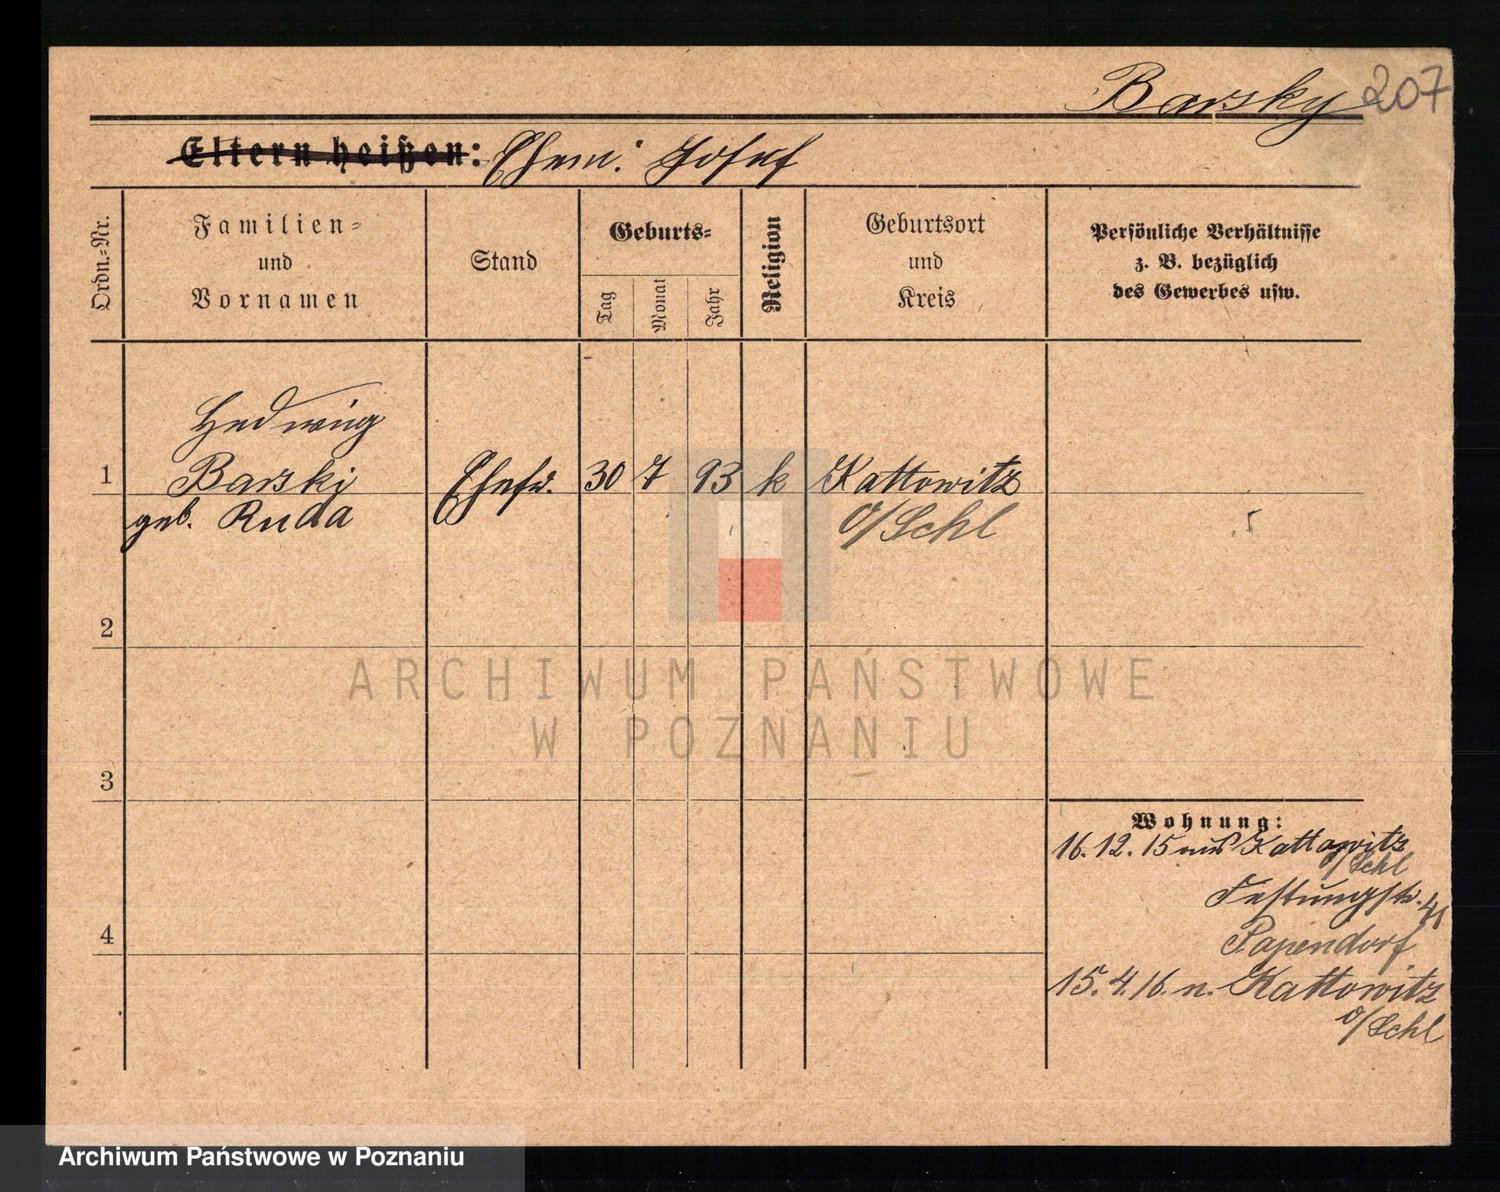 Barsky 207
Eltern heißen: Ehem: Josef
Ordn.-Nr.
Familien-
und
Vornamen
Stand
Geburts-
Tag
Monat
Jahr
Religion
Geburtsort
und
Kreis
Persönliche Verhältnisse
z. B. bezüglich
des Gewerbes usw.
Hedwig
1 Barski Ehefr. 30 7 93 k Kattowitz
geb. Ruda O/Schl
2
ARCHIWUM PAŃSTWOWE
W POZNANIU
3
Wohnung:
16.12.15 aus Kattowitz
O/Schl
Festungstr.
4 Papendorf
15.4.16. n. Kattowitz
O/Schl
Archiwum Państwowe w Poznaniu